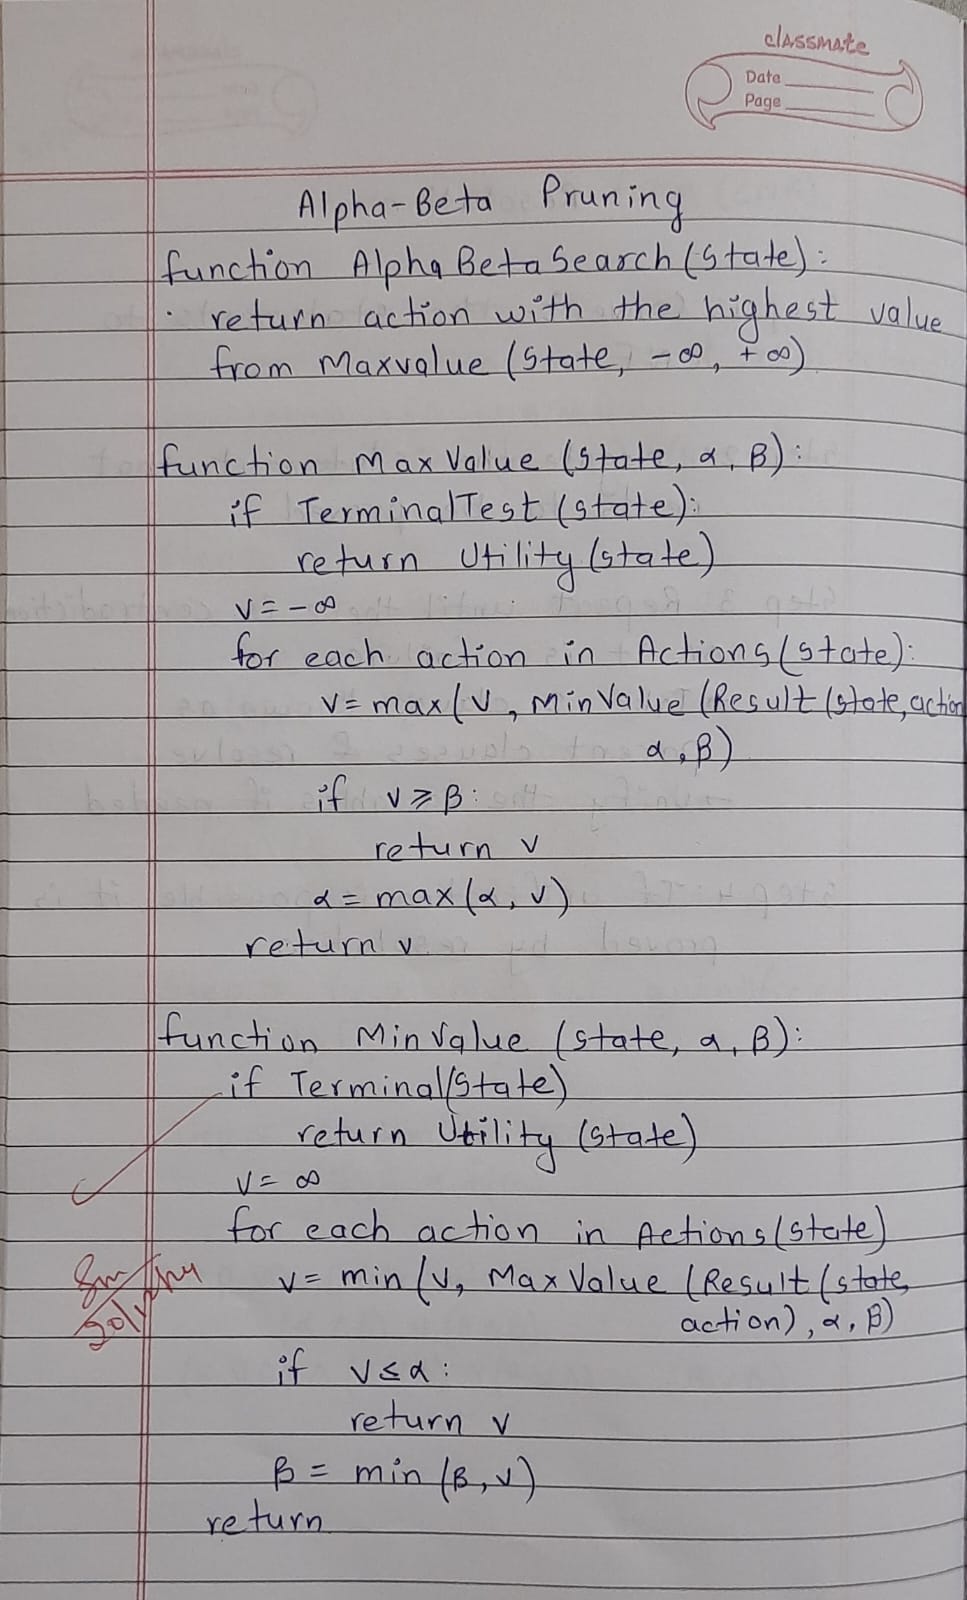 classmate
Date
Page
Alpha-Beta Pruning
function AlphaBetaSearch(State):
return action with the highest value
from Maxvalue (State, -∞, +∞)
function MaxValue (state, α, β):
if TerminalTest (state):
return Utility (state)
v = -∞
for each action in Actions (state):
v = max (v, MinValue (Result (state, action
α, β)
if v ≥ β:
return v
α = max (α, v)
return v
function MinValue (state, α, β):
if Terminal (State)
return Utility (state)
v = ∞
for each action in Actions (state)
v = min (v, MaxValue (Result (state,
action), α, β)
if v ≤ α:
return v
β = min (β, v)
return